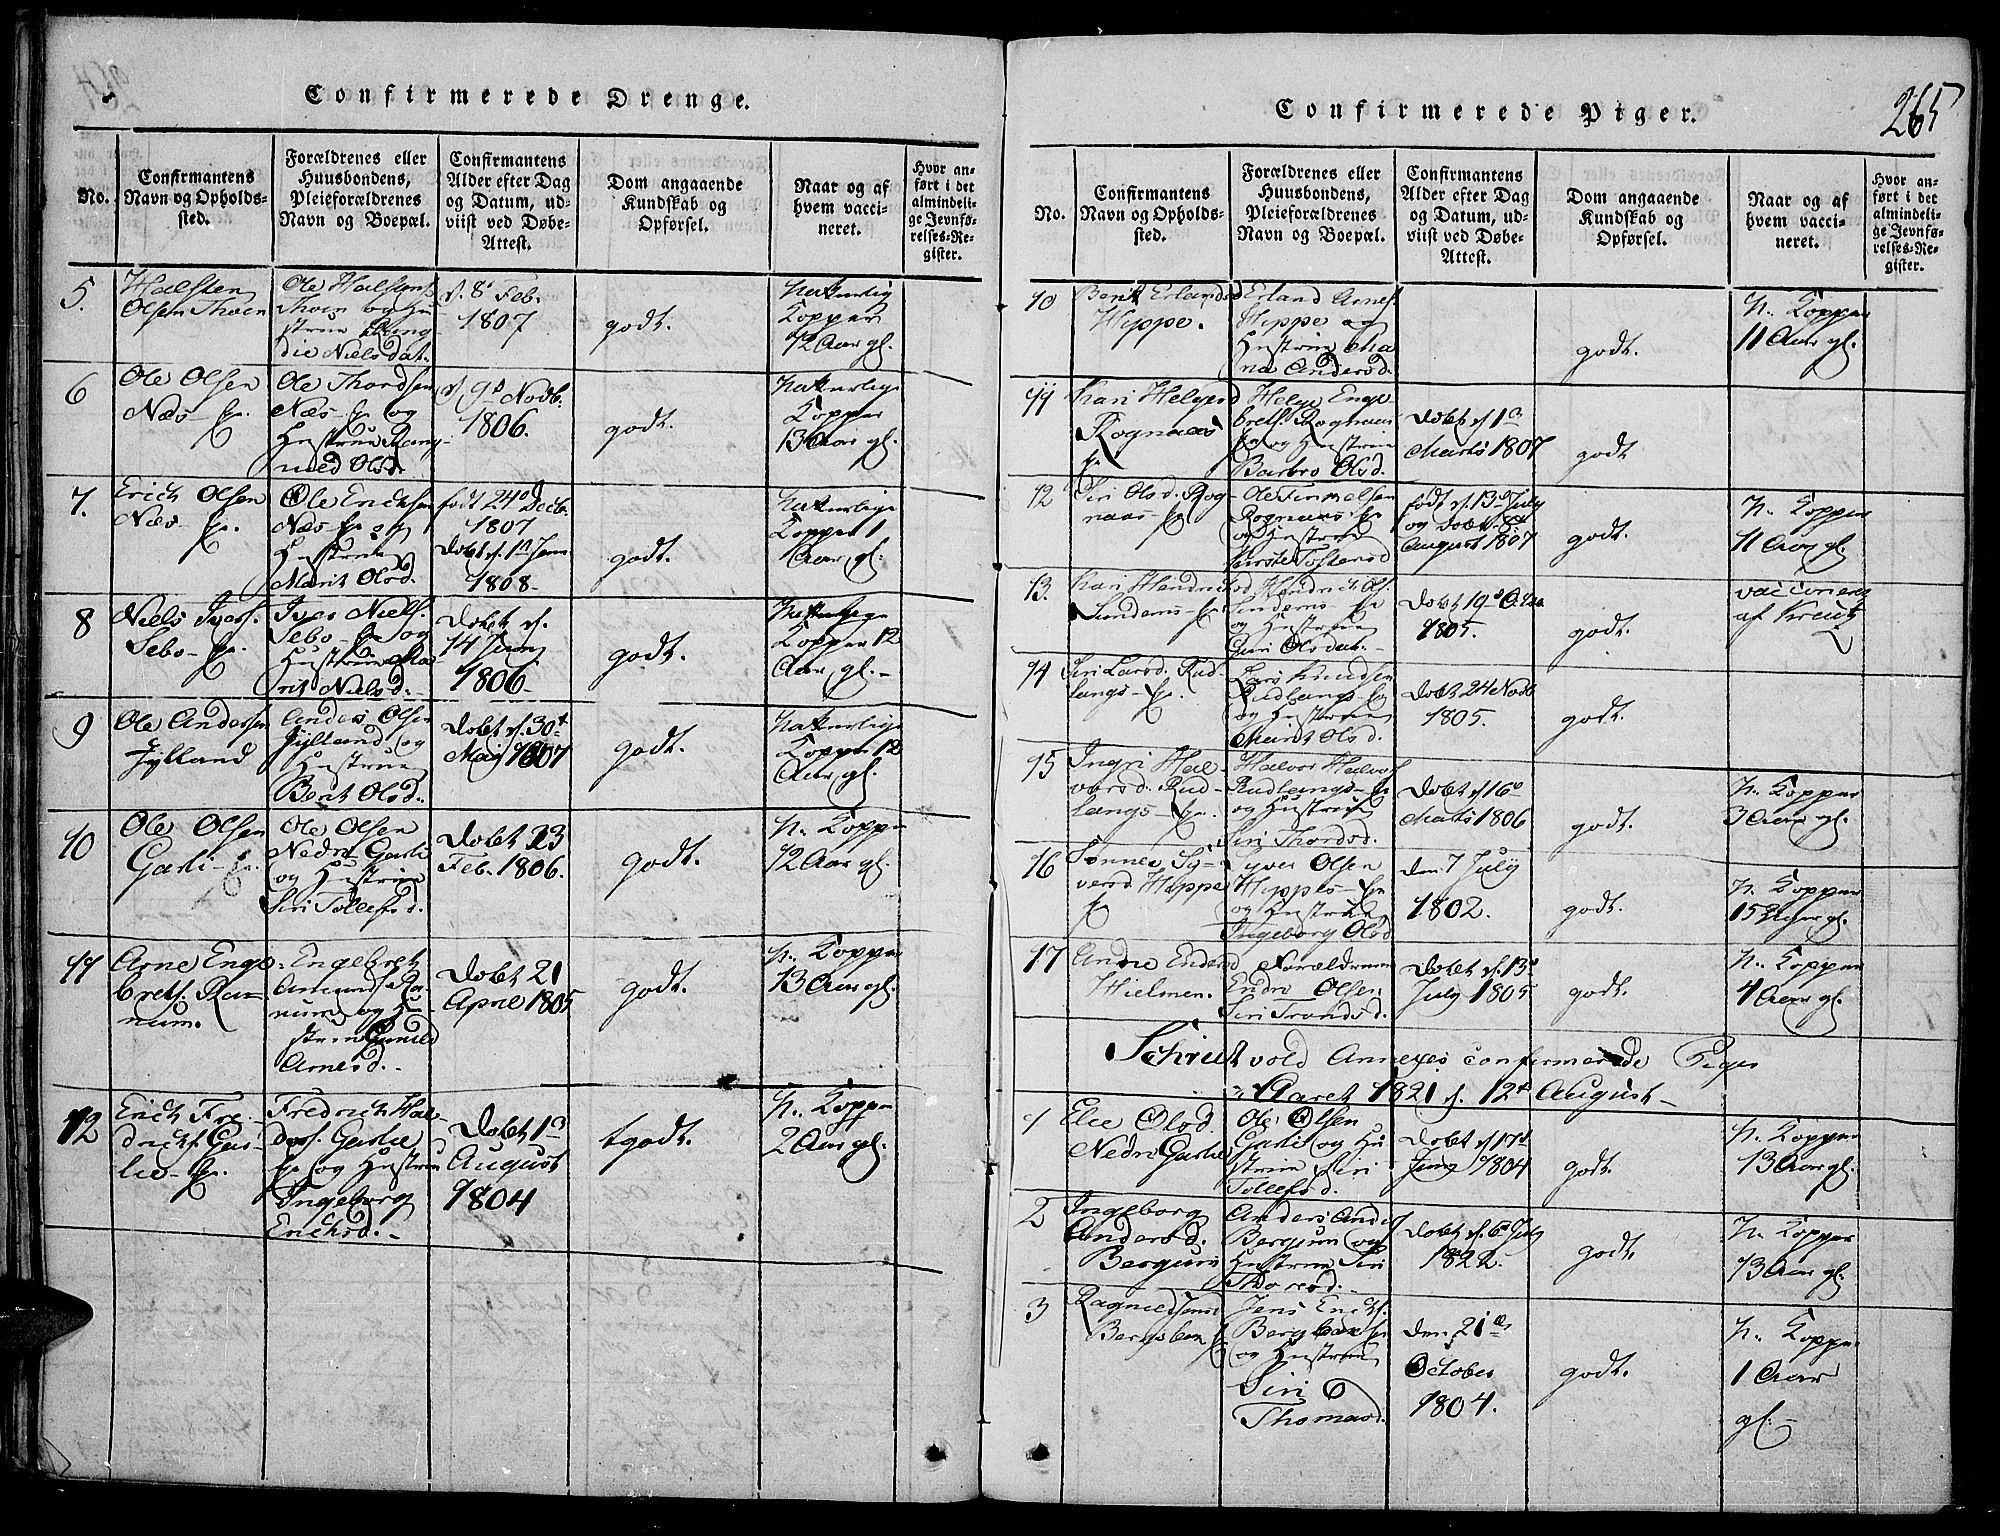 Confirmerede Drenge.
No.
Confirmantens
Navn og Opholds-
sted.
Forældrenes eller
Huusbondens,
Pleieforældrenes
Navn og Boepæl.
Confirmantens
Alder efter Dag
og Datum, ud-
viist ved Døbe-
Attest.
Dom angaaende
Kundskab og
Opførsel.
Naar og af
hvem vacci-
neret.
Hvor an-
ført i det
almindeli-
ge Jevnfø-
relses-Re-
gister.
5.
Halsten
Olsen Thoen
Ole Halstens
Thoen og Hu
strue
die Nielsdat.
d. 8d Feb.
1807
godt.
naturlig
Kopper
12 Aar gl.
6
Ole Olsen
Næs-
Ole Thordsen
Næs- og
Hustrue Rang-
nild Olsd.
d. 9d Novb.
1806.
godt.
naturlige
Kopper
13 Aar gl.
7.
Erich Olsen
Næs-
Ole Erichsen
Næs- og
Hustrue
Marit Olsd.
født 24d Decb.
1807
Døbt d. 1n Jan
1808-
godt.
naturlige
Kopper 1
Aar gl.
8
Niels Ivers.
Sebo-
Iver Niels.
Sebo- og
Hustrue Ma
rit Nielsd.-
Døbt d.
14 Juny
1806
godt.
naturlige
Kopper 12
Aar gl.-
9
Ole Andersen
Jylland
Anders Olsen
Jylland og
Hustrue
Berit Olsd.
Døbt d. 30t
Maij 1807
godt.
naturlige
Kopper 12
Aar gl.
10
Ole Olsen
Garli-
Ole Olsen
Nedre Garli
og Hustrue
Siri Tollefsd.
Døbt 23
Feb. 1806.
godt.
n. Kopper
12 Aar gl.
11
Arne Enge
brets. Ra-
num.
Engebret
Amundsen Ra-
num og Hu-
strue Gunild
Arnesd.-
Døbt 21
April 1805
godt.
n. Kopper
13 Aar gl.
12
Erich Fre-
drichs. Gar-
lie-
Fredrich Hal-
vors. Garlie
og Hustrue
Ingeborg
Erichsd.-
Døbt 1n
August
1804
tgodt.
n. Kopper
2 Aar gl.
Confirmerede Piger.
265
No.
Confirmantens
Navn og Opholds-
sted.
Forældrenes eller
Huusbondens,
Pleieforældrenes
Navn og Boepæl.
Confirmantens
Alder efter Dag
og Datum, ud-
viist ved Døbe-
Attest.
Dom angaaende
Kundskab og
Opførsel.
Naar og af
hvem vacci-
neret.
Hvor an-
ført i det
almindeli-
ge Jevnfø-
relses-Re-
gister.
10
Berit Erlandsd
Hippe.
Erland Arnes.
Hippe og
Hustrue Ma
na Andersd.
godt.
n. Kopper
11 Aar gl.
11
Kari Helgesd
Rognaas
Helge Enge
brets. Rognaas
og Hustrue
Barbro Olsd.
Døbt d. 1n
Marts 1807
godt
12
Siri Olsd. Rog
naas-
Ole
Rognaas
og Hustrue
født d. 13d July
og døbt d. 8d
August 1807
godt.
n. Kopper
11 Aar gl.
13.
Kari Hendrichsd
Sinderns-
Hendrich Ols.
Sinderns-
og Hustrue
Guri Olsdat-
Døbt 19d
1805.
godt.
vaccineret
af Kreutz
14
Siri Larsd. Rud-
langs-
Lars Knudsen
Rudlangs-
og Hustrue
Marit Olsd.
Døbt 24 Novb.
1805.
godt.
15
Ingri Hal-
vorsd. Rud-
langs-
Halvor Halvors
Rudlangs-
og Hustrue
Siri Thordsd.
Døbt d. 16d
Marts 1806
godt.
n. Kopper
3 Aar gl.
16
Sønnev Sy-
versd. Hippe
Syver Olsen
Hippes-
og Hustrue
Ingeborg Olsd
den 7 July
1802.
godt.
n. Kopper
15 Aar gl.
17
Andre Endresd
Hielmen.
Forældrene
Endre Olsen
Siri Trondsd.
Døbt d. 13d
July 1805
godt.
n. Kopper
4 Aar gl.
Schrutvold Annexes confirmerede Piger
Aaret 1821 d. 12t August-
1
Elie Olsd.
Nedre Garlie
Ole Olsen
Garli og Hu
strue Siri
Tollefsd.
Døbt d. 17d
Juny 1804
godt.
n. Kopper
13 Aar gl.
2
Ingeborg
Andersd.
Bergum
Anders Anders
Bergum og
Hustrue Siri
Thoresd.
Døbt d. 6n July
1822.
godt.
n. Kopper
13 Aar gl.
3
Ragnild Jensd
Bergsben
Jens Erichs.
Bergsben
og Hustrue
Siri
Thomasd.
den 21de
October
1804.
godt.
n. Kopper
1 Aar
gl.-